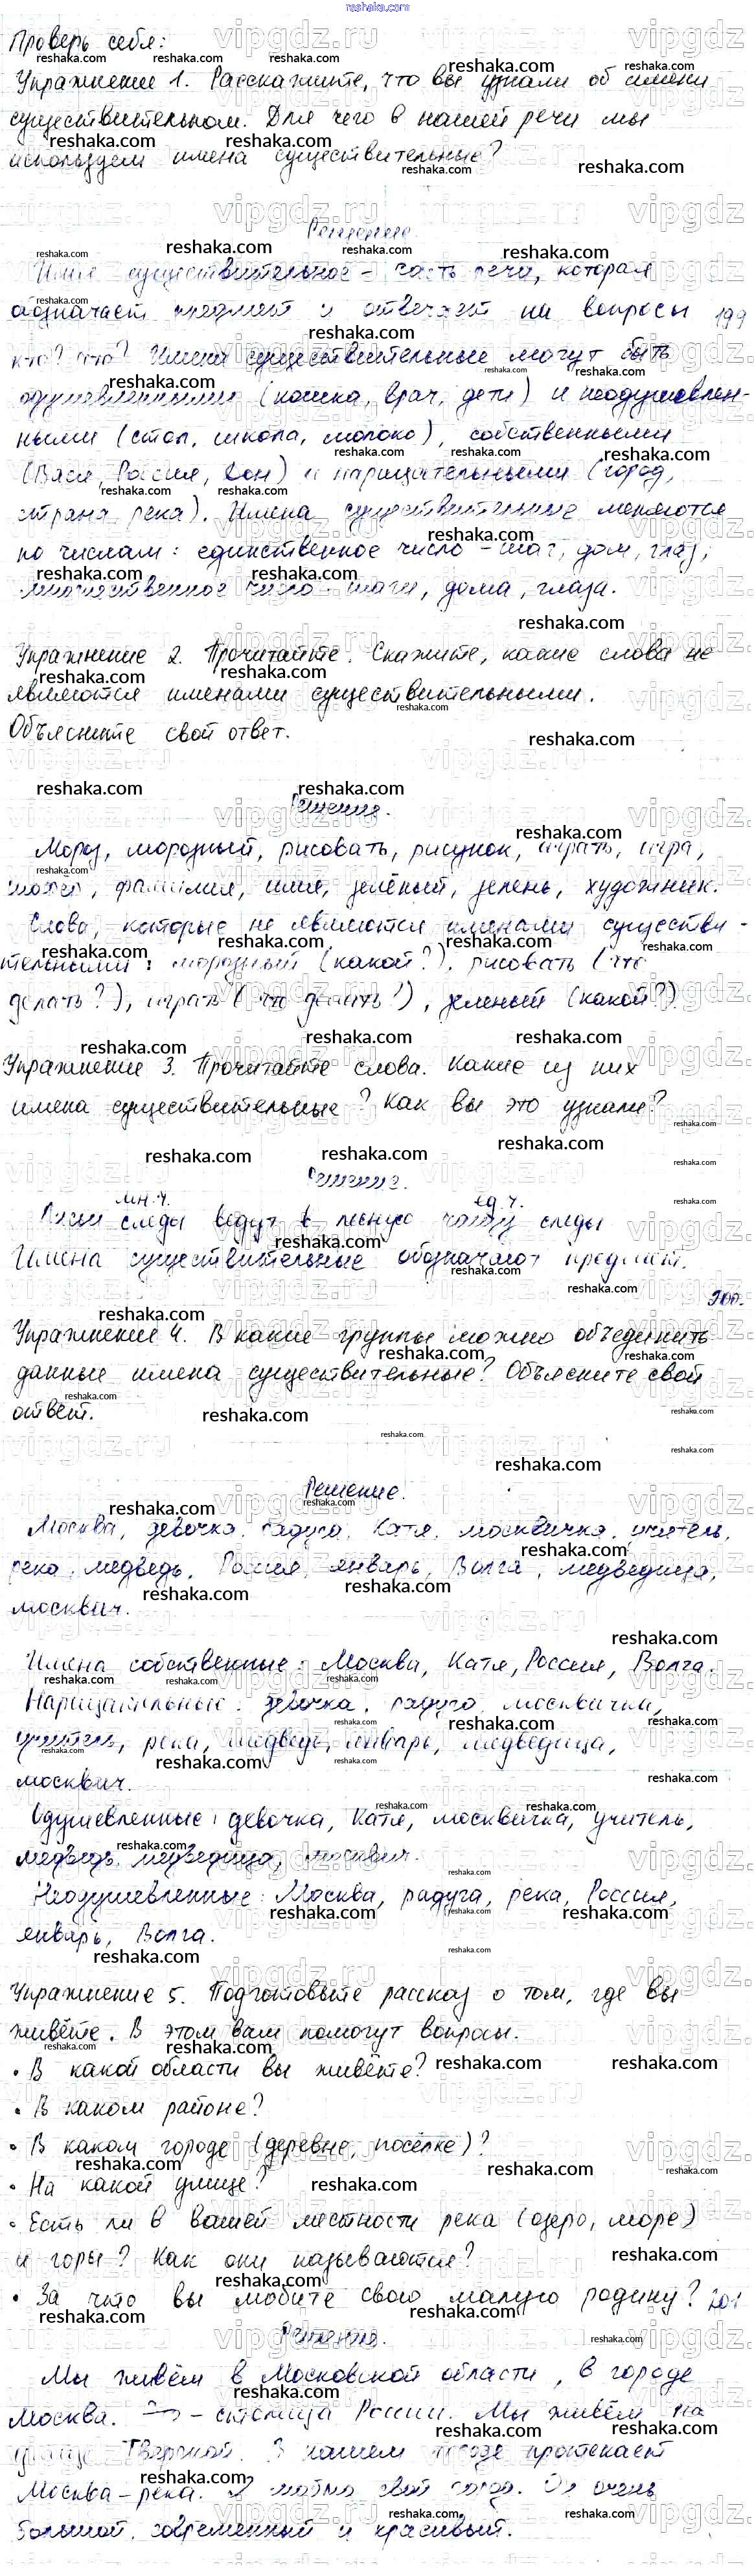 reshaka.com
Проверь себя:
Упражнение 1. Расскажите, что вы узнали об имени
существительном. Для чего в нашей речи мы
используем имена существительные?
Решение
Имя существительное - часть речи, которая
обозначает предмет и отвечает на вопросы 199
кто? что? Имена существительные могут быть
одушевленными (кошка, врач, дети) и неодушевлен-
ными (стол, школа, молоко), собственными
(Вася, Россия, Дон) и нарицательными (город,
страна, река). Имена существительные меняются
по числам: единственное число - шаг, дом, глаз;
множественное число - шаги, дома, глаза.
Упражнение 2. Прочитайте. Скажите, какие слова не
являются именами существительными.
Объясните свой ответ.
Решение.
Мороз, морозный, рисовать, рисунок, играть, игра,
фамилия, имя, зелёный, зелень, художник.
Слова, которые не являются именами существи-
тельными: морозный (какой?), рисовать (что
делать?), играть (что делать?), зеленый (какой?)
Упражнение 3. Прочитайте слова. Какие из них
имена существительные? Как вы это узнали?
Решение.
мн.ч. ед.ч.
следы ведут в лесную чащу следы
Имена существительные обозначают предмет.
200.
Упражнение 4. В какие группы можно объединить
данные имена существительные? Объясните свой
ответ.
Решение.
Москва, девочка, радуга, Катя, москвичка, учитель,
река, медведь, Россия, январь, Волга, медведица,
москвич.
Имена собственные: Москва, Катя, Россия, Волга.
Нарицательные: девочка, радуга, москвичка,
учитель, река, медведь, январь, медведица,
москвич.
Одушевленные: девочка, Катя, москвичка, учитель,
медведь, медведица, москвич.
Неодушевленные: Москва, радуга, река, Россия,
январь, Волга.
Упражнение 5. Подготовьте рассказ о том, где вы
живёте. В этом вам помогут вопросы.
• В какой области вы живёте?
• В каком районе?
• В каком городе (деревне, посёлке)?
• На какой улице?
• Есть ли в вашей местности река (озеро, море)
и горы? Как они называются?
• За что вы любите свою малую родину? 201
Решение.
Мы живём в Московской области, в городе
Москва. Это - столица России. Мы живём на
улице Тверской. В нашем городе протекает
Москва-река. Я люблю свой город. Он очень
большой, современный и красивый.